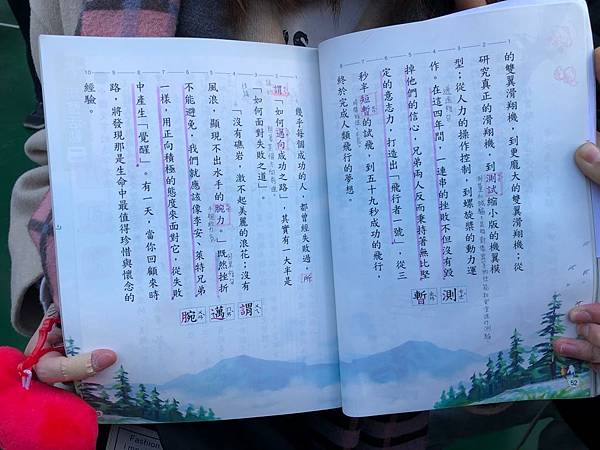 的雙翼滑翔機，到更龐大的雙翼滑翔機；從
研究真正的滑翔機，到測試縮小版的機翼模
型；從人力的操作控制，到螺旋槳的動力運
作。在這四年間，一連串的挫敗不但沒有毀
掉他們的信心，兄弟兩人反而秉持著無比堅
定的意志力，打造出「飛行者一號」，從三
秒半短暫的試飛，到五十九秒成功的飛行，
終於完成人類飛行的夢想。
測
暫
52
幾乎每個成功的人，都曾經失敗過，所
謂「如何邁向成功之路」，其實有一大半是
「如何面對失敗之道」。
「沒有礁岩，激不起美麗的浪花；沒有
風浪，顯現不出水手的腕力。」既然挫折
不能避免，我們就應該像李安、萊特兄弟
一樣，用正向積極的態度來面對它，從失敗
中產生「覺醒」。有一天，當你回顧來時
路，將發現那是生命中最值得珍惜與懷念的
經驗。
謂
邁
腕
Fashion